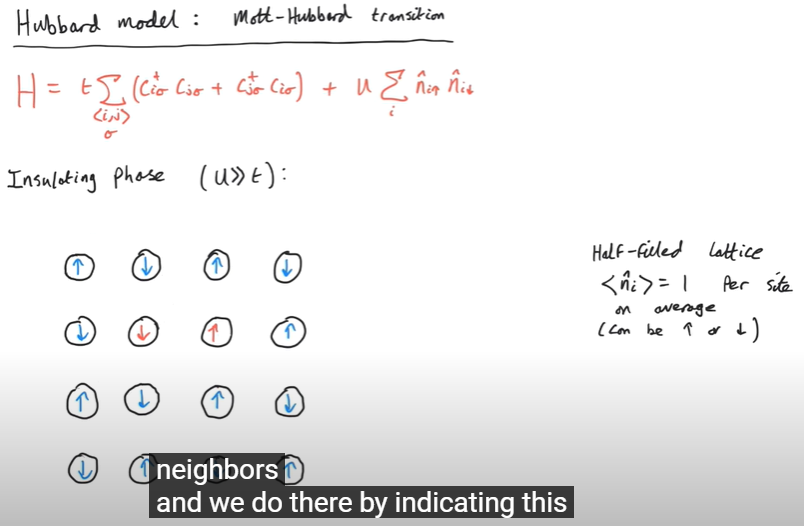 Hubbard model : Mott-Hubbard transition
H = t∑⟨i,j⟩σ (c†iσ cjσ + c†jσ ciσ) + u ∑i n̂i↑ n̂i↓
Insulating Phase (U≫t):
↑ ↓ ↑ ↓
↓ ↓ ↑ ↑
↑ ↓ ↑ ↓
↓ ↑ ↑
Half-filled lattice
<n̂i> = 1 Per site
on average
(can be ↑ or ↓)
neighbors
and we do there by indicating this